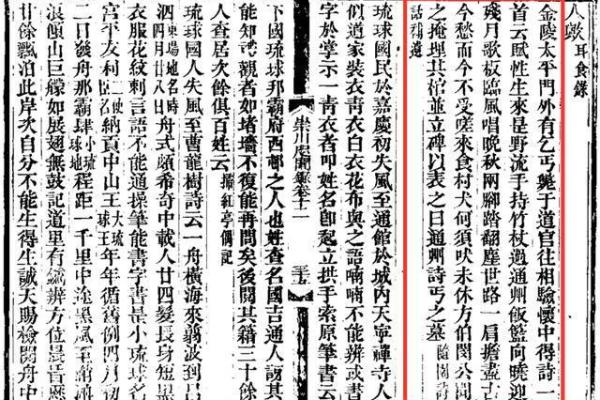 人 耳食錄
金陵太平門外有乞丐斃于道官往相驗懷中得詩一
首云賦性生來是野流手持竹杖過通州飯籃向曉迎
殘月歌板臨風唱晚秋兩腳踏翻塵世路一肩擔盡古
今愁而今不受嗟來食村犬何須吠未休方伯閔公聞
之掩埋其棺並立碑以表之曰通州詩丐之墓 隨園詩
話補遺
琉球國民於嘉慶初失風至通館於城內天寧禪寺人
似道家裝衣青衣白衣花布與之語喃喃不能辨或書
字於掌示一青衣者叩姓名卽起立拱手索原筆書云
崇川咫聞錄卷十一
下國琉球那霸府西邨之人也姓查名國吉通人訝其
能知書觀者如堵墻不復能再問矣後聞其籍三十餘
人查居次餘俱百姓云 紅亭偶記
琉球國人失風至曹龍樹詩云一舟橫海來翦波到呂
泗 東場地名時四月廿八日 舟式頗希奇中載人廿四髮長身短黑
衣服花紋刺言語不能通操筆能書字書是小琉球名
宮平友利 二使 納貢中山王 大琉球王 年年循舊例四月初
二日發舟那霸肆 小琉球地 程距一千里中途黑風至
浪傾山巨 如展翅無鼓記道里有鍼辨方位晨昏
廿餘飄泊此岸次自分不能生得生誠天賜檢閱舟中